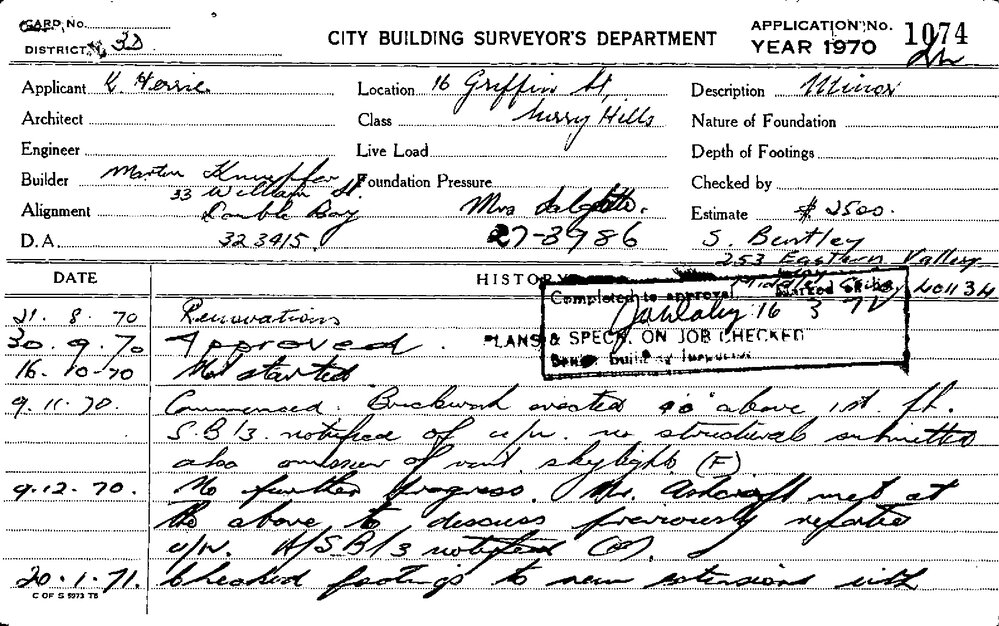 CARD No.
DISTRICT 3D
CITY BUILDING SURVEYOR'S DEPARTMENT
APPLICATION No. 1074
YEAR 1970
Applicant K.
Location 16 Griffin St,
Description Minor
Architect
Class Surry Hills
Nature of Foundation
Engineer
Live Load
Depth of Footings
Builder Martin
33 William St.
Foundation Pressure
Checked by
Alignment Double Bay
Mrs
Estimate $ 2500.
D.A. 323415.
27-3786
S. Bentley
253 Eastern Valley
Way
40 1134
DATE
HISTORY
Completed to approval
16 3 72
PLANS & SPECN. ON JOB CHECKED
Building Inspector
21. 8. 70 Renovations
30. 9. 70 Approved.
16. 10. 70 Not started
9. 11. 70. Commenced. Brickwork erected above 1st. fl.
S.B/3. notified of u/w. no structurals submitted
also omission of vent. skylights (F)
9. 12. 70. No further progress. Mr. Ashcroft met at
the above, to discuss previously reported
u/w. A/S.B/3 notified
20. 1. 71. Checked footings to new extensions with
C OF S 5973 TB